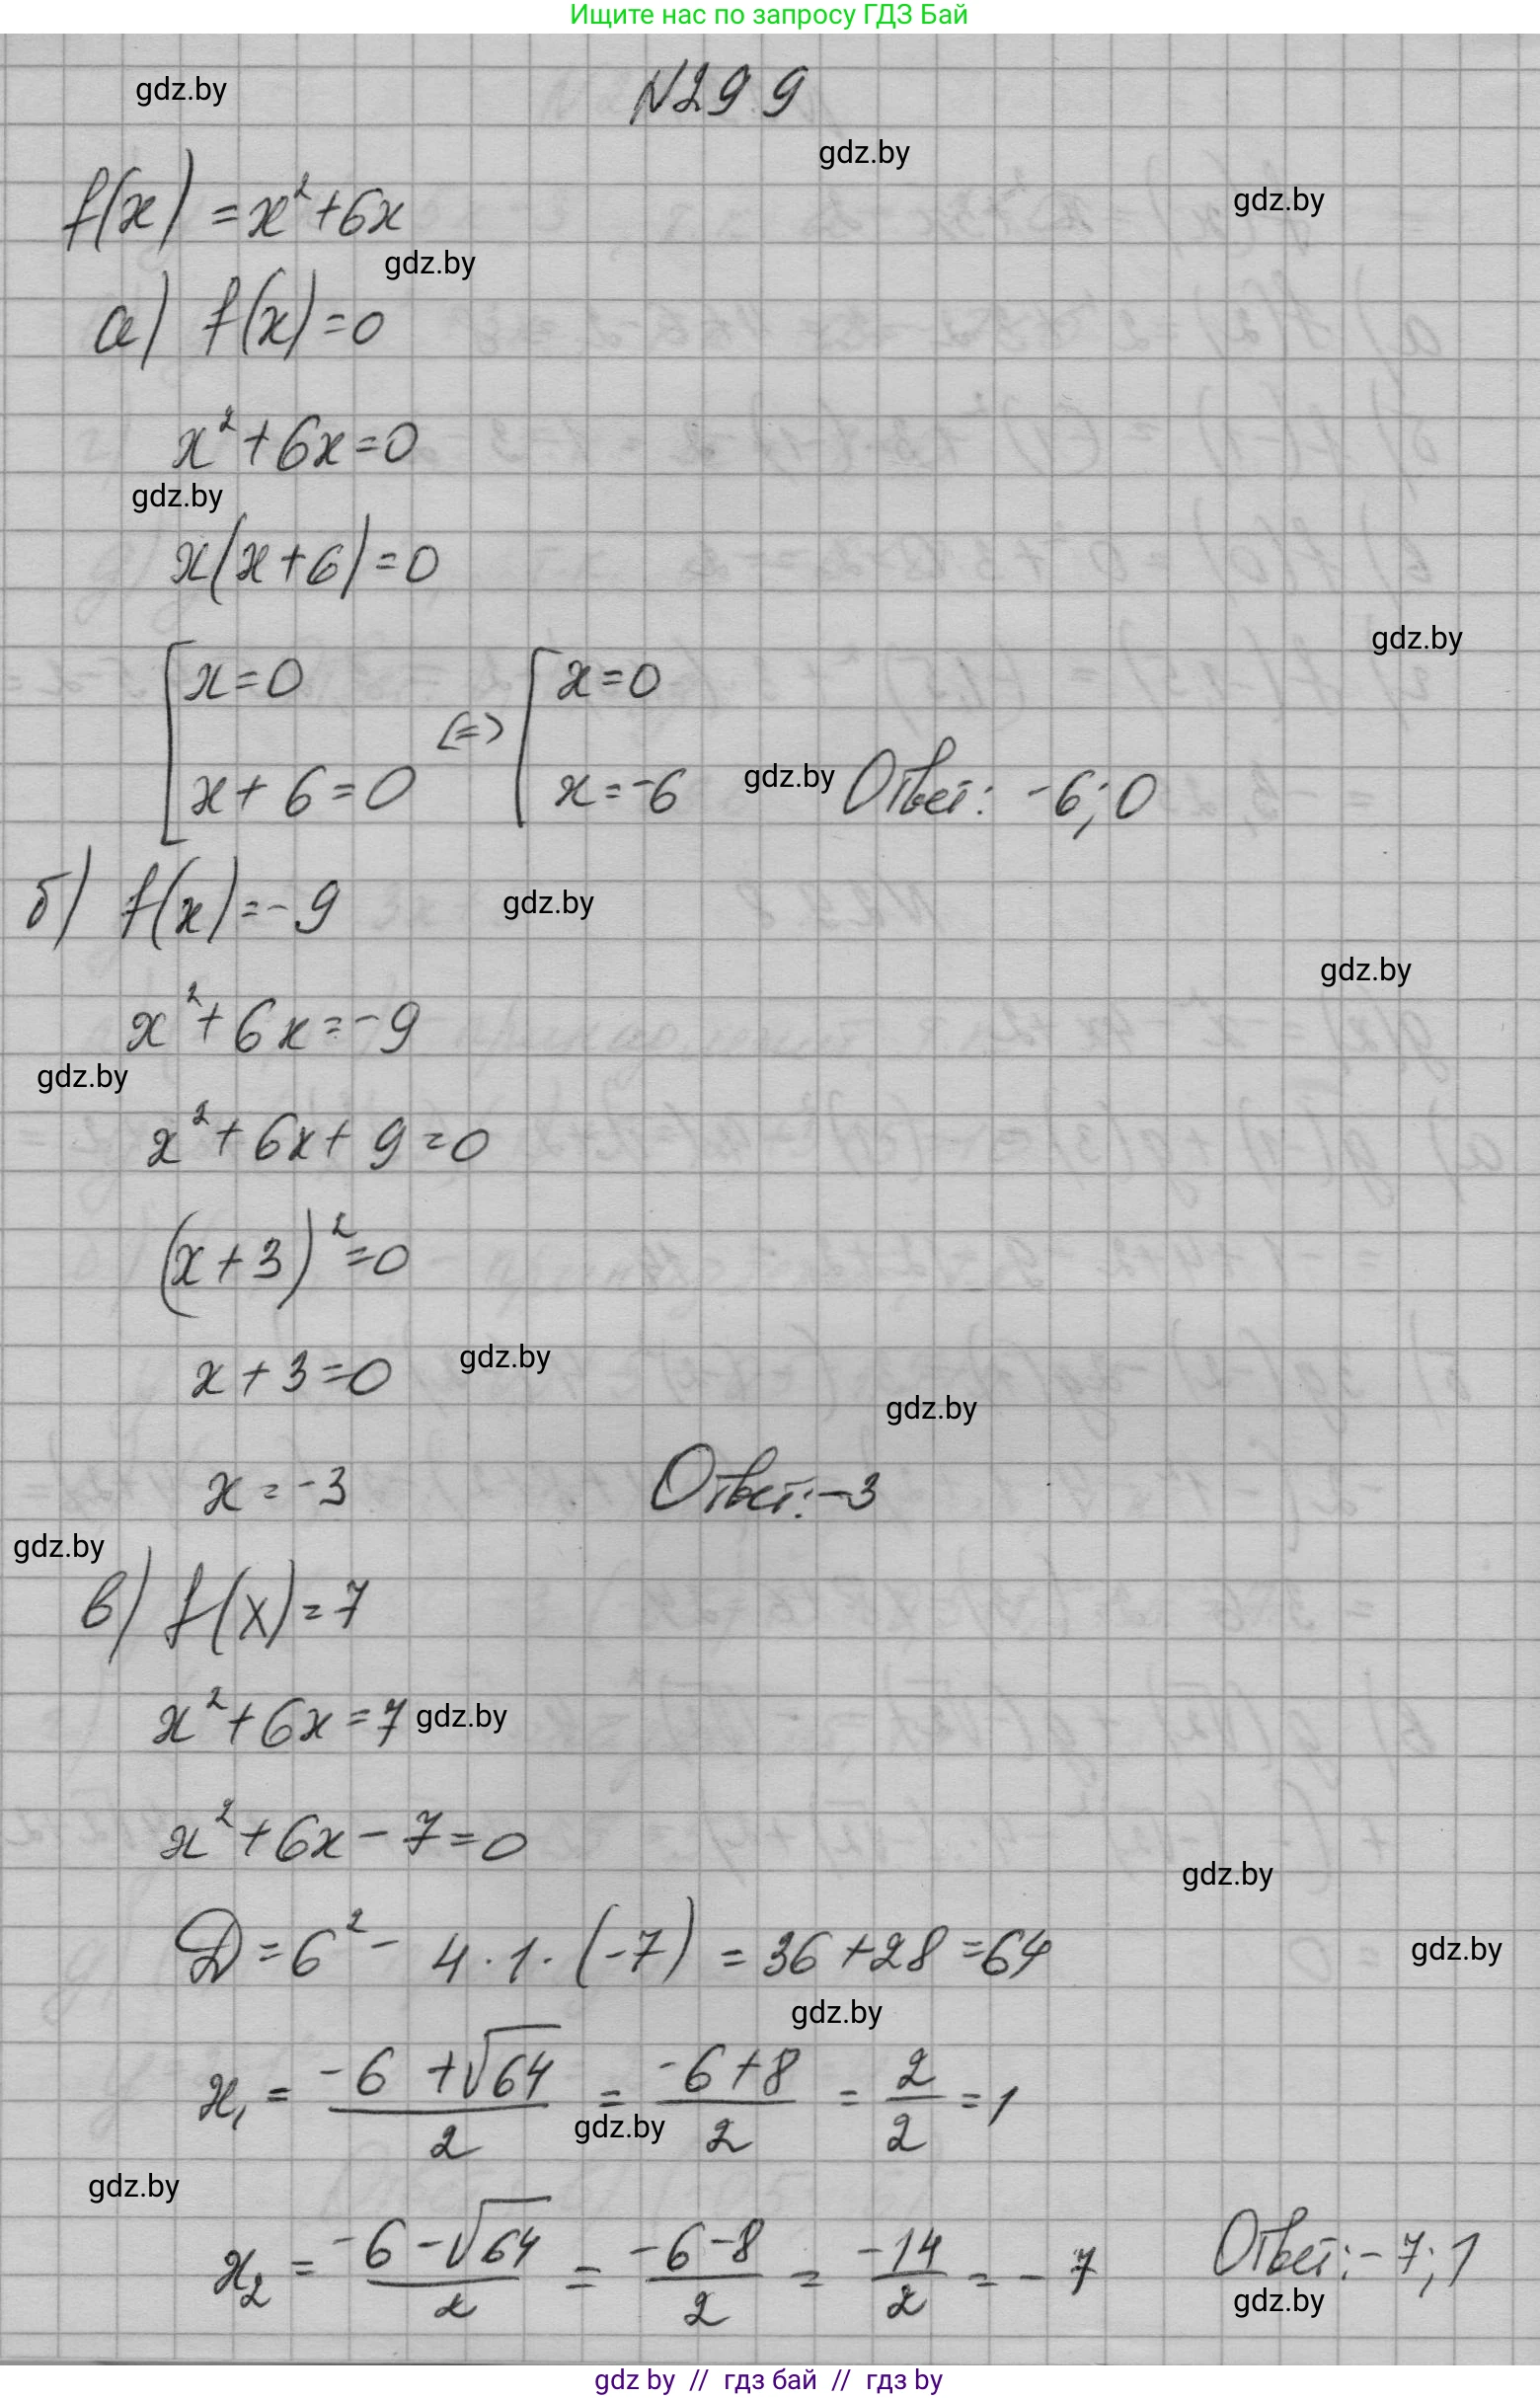 Ищите нас по запросу ГДЗ Бай
gdz.by
№299
gdz.by
gdz.by
f(x) = x²+6x
gdz.by
а) f(x)=0
x²+6x=0
gdz.by
x(x+6)=0
gdz.by
[x=0 <=> [x=0
x+6=0 x=-6 gdz.by Ответ: -6;0
б) f(x)=-9 gdz.by
gdz.by
x²+6x=-9
gdz.by
x²+6x+9=0
(x+3)²=0
x+3=0 gdz.by
gdz.by
x=-3 Ответ:-3
gdz.by
в) f(x)=7
x²+6x=7 gdz.by
x²+6x-7=0
gdz.by
D=6²-4·1·(-7)=36+28=64 gdz.by
gdz.by
x₁ = (-6+√64)/2 = (-6+8)/2 = 2/2 = 1
gdz.by
gdz.by
x₂ = (-6-√64)/2 = (-6-8)/2 = -14/2 = -7 Ответ:-7;1
gdz.by
gdz by // гдз бай // гдз by